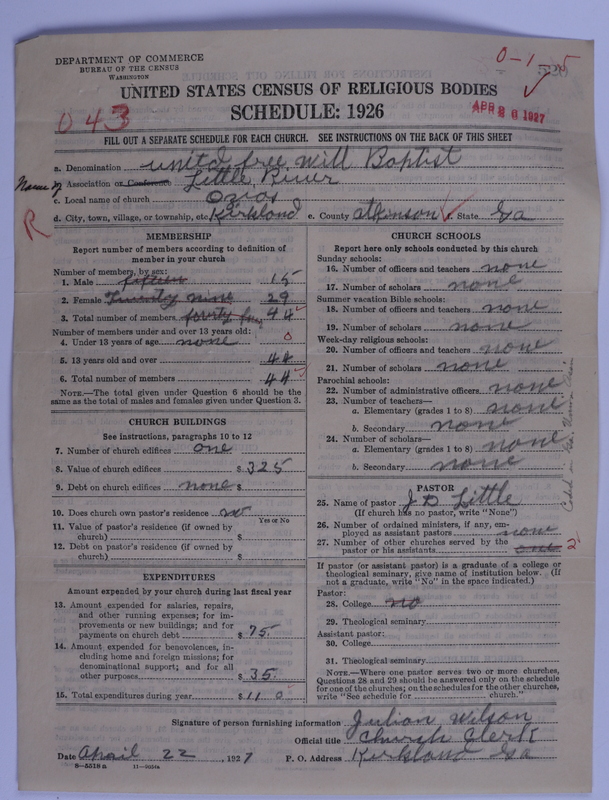 DEPARTMENT OF COMMERCE
BUREAU OF THE CENSUS
WASHINGTON
0-1
APR 26 1927
UNITED STATES CENSUS OF RELIGIOUS BODIES
SCHEDULE: 1926
043
FILL OUT A SEPARATE SCHEDULE FOR EACH CHURCH. SEE INSTRUCTIONS ON THE BACK OF THIS SHEET
a. Denomination united free will Baptist
Name of b. Association or Conference Little River
c. Local name of church
d. City, town, village, or township, etc Kirkland e. County atkinson f. State Ga
R
MEMBERSHIP
Report number of members according to definition of member in your church
Number of members, by sex:
1. Male fifteen 15
2. Female Twenty nine 29
3. Total number of members 44
Number of members under and over 13 years old:
4. Under 13 years of age none 0
5. 13 years old and over 44
6. Total number of members 44
NOTE.—The total given under Question 6 should be the same as the total of males and females given under Question 3.
CHURCH BUILDINGS
See instructions, paragraphs 10 to 12
7. Number of church edifices one
8. Value of church edifices $ 325
9. Debt on church edifices none $
10. Does church own pastor's residence no
Yes or No
11. Value of pastor's residence (if owned by church) $
12. Debt on pastor's residence (if owned by church) $
EXPENDITURES
Amount expended by your church during last fiscal year
13. Amount expended for salaries, repairs, and other running expenses; for improvements or new buildings; and for payments on church debt $ 75.
14. Amount expended for benevolences, including home and foreign missions; for denominational support; and for all other purposes $ 35.
15. Total expenditures during year $ 110
CHURCH SCHOOLS
Report here only schools conducted by this church
Sunday schools:
16. Number of officers and teachers none
17. Number of scholars none
Summer vacation Bible schools:
18. Number of officers and teachers none
19. Number of scholars none
Week-day religious schools:
20. Number of officers and teachers none
21. Number of scholars none
Parochial schools:
22. Number of administrative officers none
23. Number of teachers—
a. Elementary (grades 1 to 8) none
b. Secondary none
24. Number of scholars—
a. Elementary (grades 1 to 8) none
b. Secondary none
PASTOR
25. Name of pastor J D Little
(If church has no pastor, write "None")
26. Number of ordained ministers, if any, employed as assistant pastors none
27. Number of other churches served by the pastor or his assistants one 2
If pastor (or assistant pastor) is a graduate of a college or theological seminary, give name of institution below. (If not a graduate, write "No" in the space indicated.)
Pastor:
28. College no
29. Theological seminary
Assistant pastor:
30. College
31. Theological seminary
NOTE.—Where one pastor serves two or more churches, Questions 28 and 29 should be answered only on the schedule for one of the churches; on the schedules for the other churches, write "See schedule for church."
Signature of person furnishing information Julian Wilson
Official title Church Clerk
Date April 22, 1927 P. O. Address Kirkland Ga
8—5518a 11—9054a